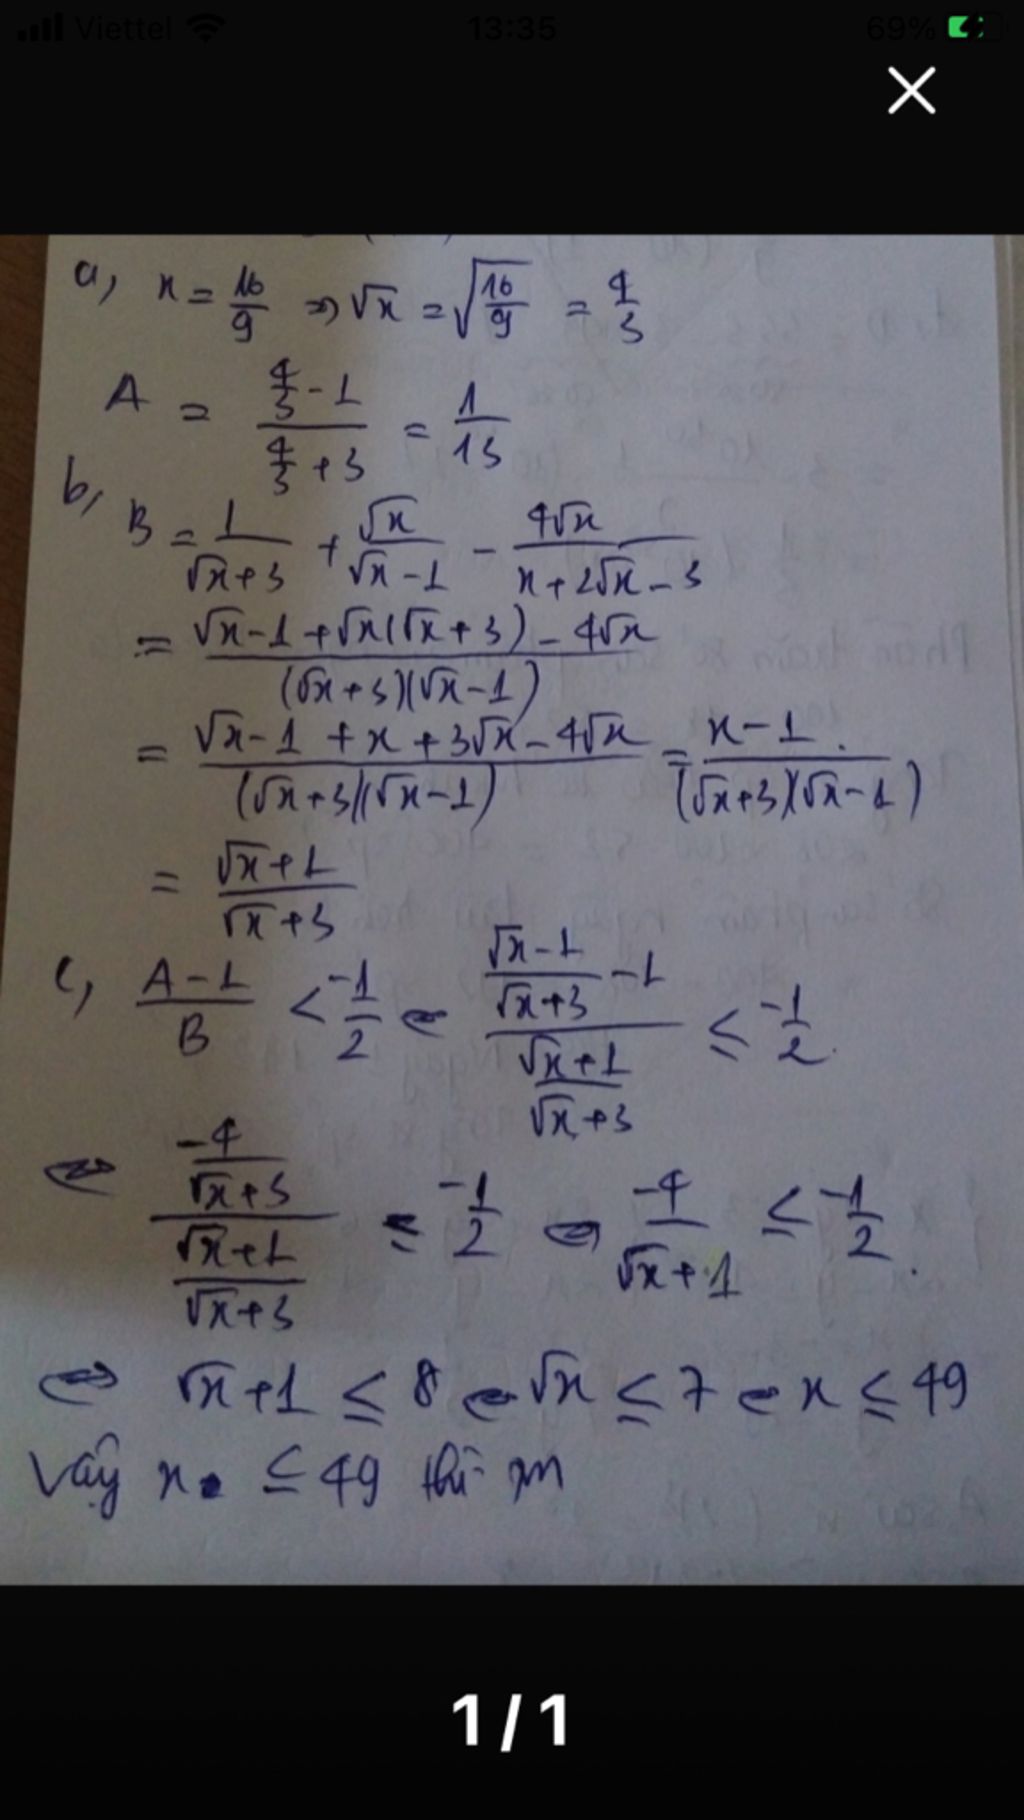 Viettel 13:35 69%
a, x = 16/9 => √x = √(16/9) = 4/3
A = (4/3 - 1)/(4/3 + 3) = 1/13
b,
B = 1/(√x+3) + √x/(√x-1) - 4√x/(x+2√x-3)
= (√x-1+√x(√x+3)-4√x)/((√x+3)(√x-1))
= (√x-1+x+3√x-4√x)/((√x+3)(√x-1)) = (x-1)/((√x+3)(√x-1))
= (√x+1)/(√x+3)
c, (A-1)/B < -1/2 <=> ((√x-1)/(√x+3) - 1)/((√x+1)/(√x+3)) ≤ -1/2.
<=> (-4/(√x+3))/((√x+1)/(√x+3)) ≤ -1/2 <=> -4/(√x+1) ≤ -1/2.
<=> √x+1 ≤ 8 <=> √x ≤ 7 <=> x ≤ 49
Vậy x ≤ 49 thì
1/1